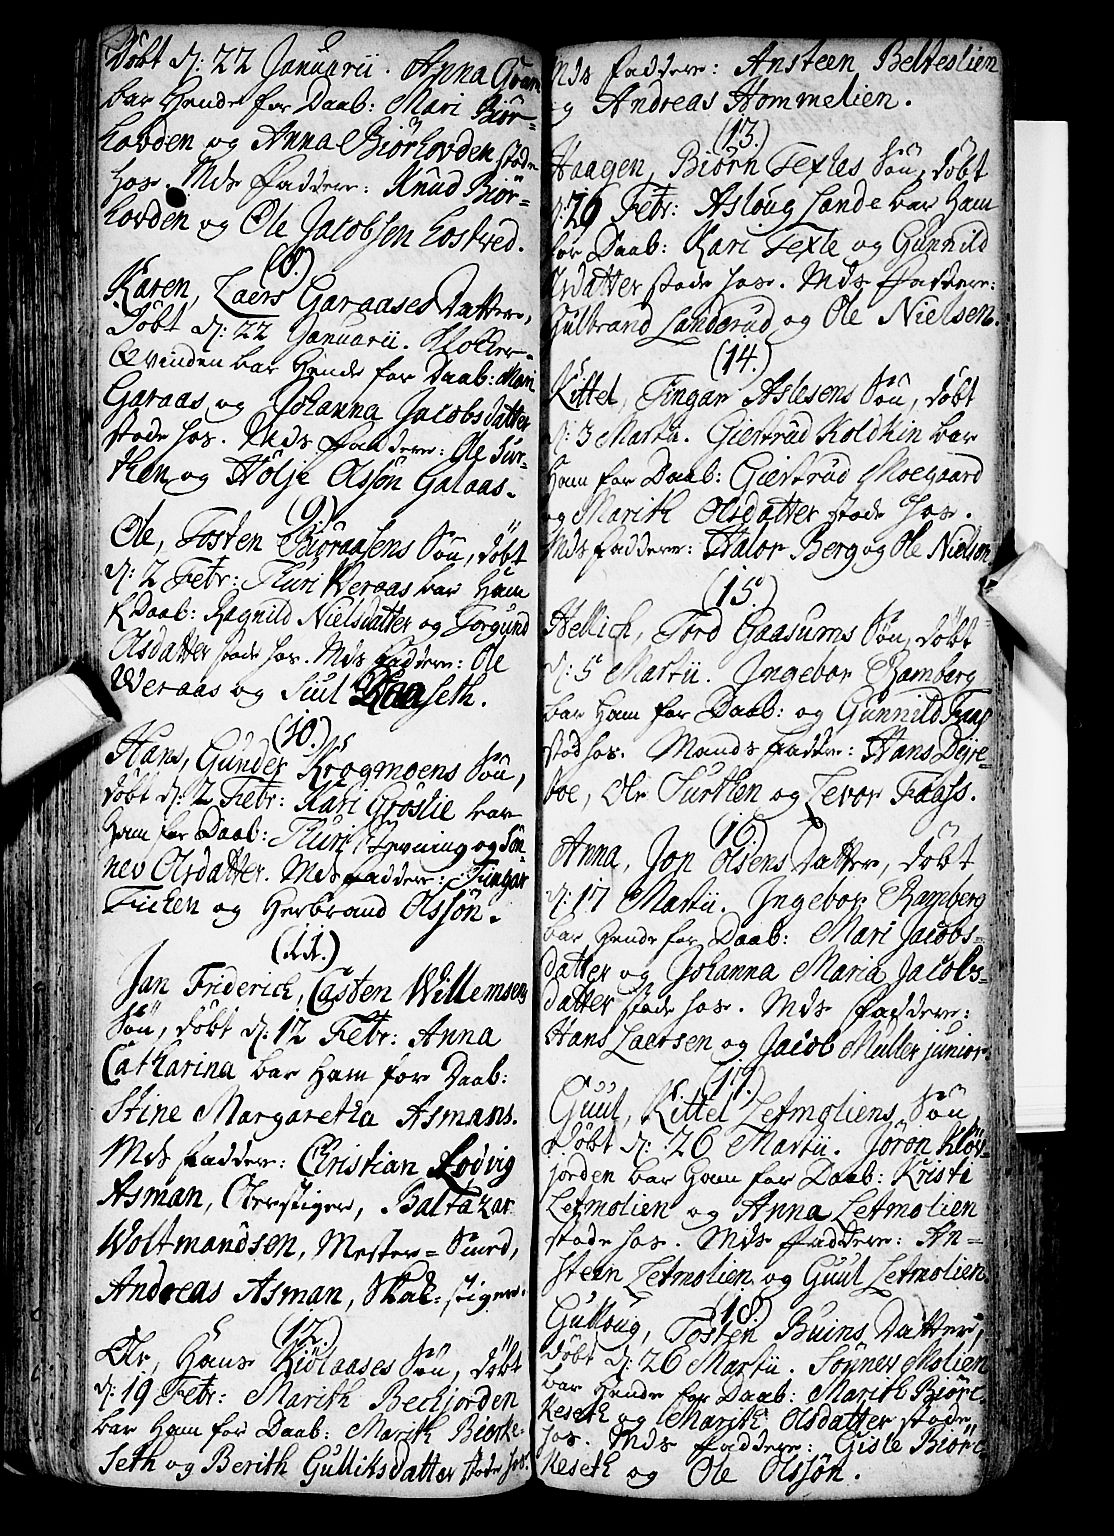 Döbt d: 22 Januarii. Anna Qvam
bar Hende for Daab: Mari Biör-
hovden og Anna Biörhovden stode
hos. Mds Faddere: Knud Biör-
hovden og Ole Jacobsen Fostved.
(8.)
Karen, Laers Garaases Datter,
Döbt d: 22 Januarii. Klocker-
Qvinden bar Hende for Daab: Mari
Garaas og Johanna Jacobsdatter
stode hos. Mds Faddere: Ole Tur-
tken og Hölje Olssön Galaas.
(9)
Ole, Tosten Bioraasens Sön, döbt
d: 2 Febr: Thuri Weraas bar Ham
f. Daab: Ragnild Nielsdatter og Torgund
Olsdatter stode hos. Mds Faddere: Ole
Weraas og Siul Raaseth.
(10.)
Hans, Gunder Krogmoens Sön,
döbt d: 2 Febr: Kari Gröslie bar
Ham for Daab: Thuri Revning og Sön-
nev Olsdatter. Mds Faddere: Tingar
Ficken og Herbrand Olssön.
(11.)
Jan Friderich, Casten Willemsens
Sön, döbt d: 12 Febr: Anna
Catharina bar Ham for Daab:
Stine Margaretha Asmans.
Mds Faddere: Christian Lodvig
Asman, Oberstiger, Baltazar
Woltmandsen, Mester-Smed,
Andreas Asman, Skak-stiger.
(12.)
Ole, Hans Kiölaases Sön, döbt
d: 19 Febr: Marith Beckjorden
bar Ham for Daab: Marith Biörke-
seth og Berith Gulliksdatter stode hos.
Mds Faddere: Ansteen Belteslien
og Andreas Hommelien.
(13.)
Haagen, Biörn Texles Sön, döbt
d: 26 Febr: Asloug Lande bar Ham
for Daab: Kari Texle og Gunnild
Olsdatter stode hos. Mds Faddere:
Gulbrand Landsrud og Ole Nielsen.
(14.)
Kittel, Tingar Aslesens Sön, döbt
d: 3 Martii. Giertrud Koldkin bar
Ham for Daab: Giertrud Moegaard
og Marith Olsdatter stode hos.
Mds Faddere: Halor Berg og Ole Nielsen
(15.)
Hellich, Tord Gaasums Sön, döbt
d: 5 Martii. Ingebor Ramberg
bar Ham for Daab: og Gunnild Faas
stod hos. Mands Faddere: Hans Dejre-
boe, Ole Turtken og Levor Faass.
(16)
Anna, Jon Olsens Datter, döbt
d: 17 Martii. Ingebor Ramberg
bar Hende for Daab: Mari Jacobs-
datter og Johanna Maria Jacobs-
datter stode hos. Mds Faddere:
Hans Laersen og Jacob Müller junior.
(17.)
Guul, Kittel Letmoliens Sön,
Döbt d: 26 Martii. Jöron Klöv-
jorden bar Ham for Daab: Kristi
Letmolien og Anna Letmolien
stode hos. Mds Faddere: An-
steen Letmolien og Guul Letmolien.
(18.)
Gulloug, Tosten Buins Datter,
döbt d: 26 Martii. Sönnev Molien
bar Hende for Daab: Marith Biörc-
keseth og Marith Olsdatter stode
hos. Mds Faddere: Gisle Biörc-
keseth og Ole Olssön.